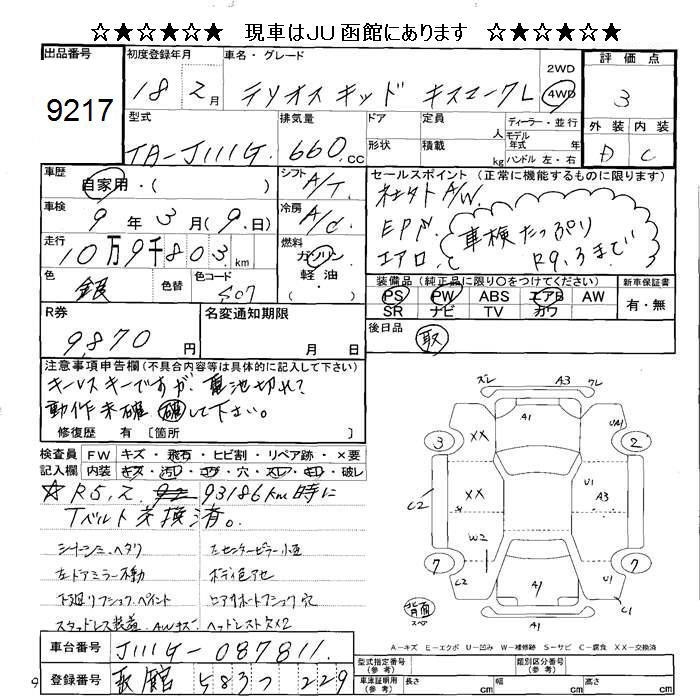 ☆★☆★☆ 現車はJU函館にあります ☆★☆★☆
出品番号
9217
初度登録年月
18 2月
車名・グレード
テリオスキッド キスマークL
2WD
4WD
評価点
3
型式
TA-J111G
排気量
660.cc
ドア
形状
定員
人
積載
kg
ディーラー・並行
モデル年式 年式
ハンドル 左・右
外装 内装
D C
車歴
自家用・( )
シフト
A/T
セールスポイント (正常に機能するものに限ります)
社外A/W.
EPW.
エアロ.
車検たっぷり
R9.3まで
車検
9年3月(9.日)
冷房
A/C
走行
10万9千803km
燃料
ガソリン
軽油・
( )
色
銀
色替
色コード
S07
装備品(純正品に限り○をつけてください)
新車保証書
PS PW ABS エアB AW
SR ナビ TV カワ
有・無
R券
9,870円
名変通知期限
月 日
後日品
取
注意事項申告欄(不具合内容等は具体的に記入して下さい)
キーレスキーですが、電池切れ?
動作未確 確して下さい。
修復歴 有 〔箇所
検査員
記入欄
FW キズ・飛石・ヒビ割・リペア跡・×要
内装 キズ・汚レ・コゲ・穴・スレ・キレ・破レ
☆R5,2, 93186km時に
Tベルト交換済。
シートシミ・ヘタリ
左ドアミラー不動
下廻リフショク.ペイント
スタッドレス装着.AWキズ
左センターピラー小凹
ボディ色アセ
ロアサポートフショク穴
ヘッドレスト欠×2
ズレ A3 ワレ
A1
3 XX UA1 2
XX U1 A3
C2
W2
7 7
C2 A1 U1 C1
背面
スペア
A-キズ E-エクボ U-凹み W-補修跡 S-サビ C-腐食 XX-交換済
車台番号
J111G-087811.
登録番号
函館 583つ 229
型式指定番号
(参考)
類別区分番号
(参考)
車体証明用
(参考)
長さ cm
幅 cm
高さ cm
9